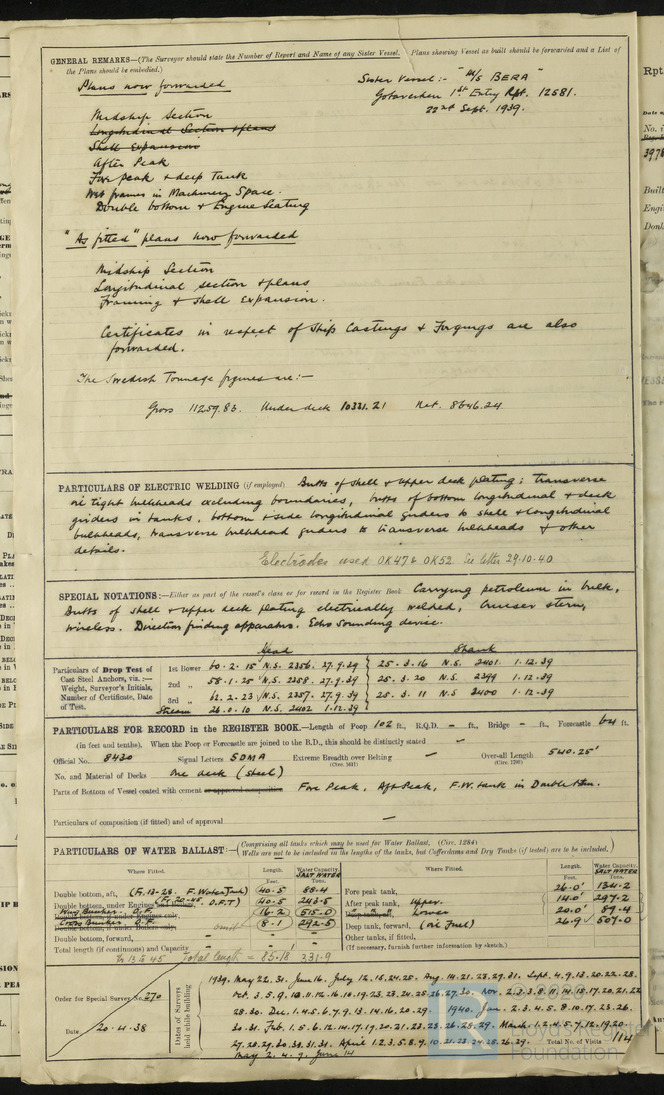 GENERAL REMARKS—(The Surveyor should state the Number of Report and Name of any Sister Vessel. Plans showing Vessel as built should be forwarded and a List of
the Plans should be embodied.)
Plans now forwarded
Sister Vessel:- "M/S BERA"
Gotaverken 1st Entry Rpt. 12581.
22nd Sept. 1939.
Midship Section
Longitudinal Section & plans
Shell Expansion
After Peak
Fore peak & deep Tank
Web frames in Machinery Space.
Double bottom & Engine Seating
"As fitted" plans now forwarded
Midship Section
Longitudinal section & plans
Framing & Shell Expansion.
Certificates in respect of Ship Castings & Forgings are also
forwarded.
The Swedish Tonnage figures are:-
Gross 11259.83. Under deck 10331.21 Net. 8646.24
PARTICULARS OF ELECTRIC WELDING (if employed) Butts of shell & upper deck plating; transverse
oil tight bulkheads excluding boundaries, butts of bottom longitudinal & deck
girders in tanks, bottom & side longitudinal girders to shell & longitudinal
bulkheads, transverse bulkhead girders to transverse bulkheads & other
details.
Electrodes used OK47 & OK52. See letter 29.10.40
SPECIAL NOTATIONS:—Either as part of the vessel's class or for record in the Register Book Carrying petroleum in bulk,
Butts of shell & upper deck plating electrically welded, Cruiser stern,
Wireless. Direction finding apparatus. Echo Sounding device.
Head Shank
Particulars of Drop Test of
Cast Steel Anchors, viz.:—
Weight, Surveyor's Initials,
Number of Certificate, Date
of Test.
1st Bower 60.2.15 N.S. 2356. 27.9.39 25.3.16 N.S. 2401 1.12.39
2nd „ 58.1.25 N.S. 2358. 27.9.39 25.3.20 N.S. 2399 1.12.39
3rd „ 62.2.23 N.S. 2357. 27.9.39 25.3.11 N.S. 2400 1.12.39
Stream 26.0.10 N.S. 2402 1.12.39
PARTICULARS FOR RECORD in the REGISTER BOOK.—Length of Poop 102 ft., R.Q.D. – ft., Bridge – ft., Forecastle 64 ft.
(in feet and tenths). When the Poop or Forecastle are joined to the B.D., this should be distinctly stated –
Official No. 8430 Signal Letters SDMA Extreme Breadth over Belting – Over-all Length 540.25'
(Circ. 1611) (Circ. 1703)
No. and Material of Decks One deck (steel)
Parts of Bottom of Vessel coated with cement or approved composition Fore Peak, Aft Peak, F.W. tank in Double Btm.
Particulars of composition (if fitted) and of approval –
PARTICULARS OF WATER BALLAST:—(Comprising all tanks which may be used for Water Ballast, (Circ. 1284)
Wells are not to be included in the lengths of the tanks, but Cofferdams and Dry Tanks (if tested) are to be included.)
Where Fitted. Length. Feet. Water Capacity. SALT WATER Tons.
Double bottom, aft, (Fr. 13-28. F. Water Tank) 40.5 88.4
Double bottom, under Engines (Fr. 28-45. O.F.T) 40.5 243.5
Wing Bunker. O.F. 16.2 515.0
Cross Bunker O.F. omit 8.1 292.5
Double bottom, forward, – –
Total length (if continuous) and Capacity – –
Fr 13 to 45 Total length = 85.18' 331.9
Where Fitted. Length. Feet. Water Capacity. SALT WATER Tons.
Fore peak tank, 26.0' 134.2
After peak tank, upper. 14.0' 297.2
lower 20.0' 89.4
Deep tank, forward, (oil Fuel) 26.9 507.0
Other tanks, if fitted,
(If necessary, furnish further information by sketch.)
Order for Special Survey No. 270
Date 20.4.38
Dates of Surveys held while building
1939. May 22.31. June 16. July 12.18.24.25. Aug. 14.21.23.29.31. Sept. 4.9.13.20.22.28.
Oct. 3.5.9.10.11.12.16.18.19.23.23.24.25.26.27.30. Nov. 2.3.3.8.11.15.17.20.21.22
28.30. Dec. 1.4.5.6.7.9.13.14.16.20.29. 1940. Jan. 2.3.4.5.8.10.17.23.26.
30.31. Feb. 1.5.6.12.14.17.19.20.21.23.23.26.28.29. March 1.2.4.5.7.12.19.20
27.28.29.30.30.31.31. April 1.2.3.5.8.9.10.21.23.24.25.26.29. Total No. of Visits 114
May 2.4.9. June 14
© 2020
Lloyd's Register
Foundation
Rpt
3976
Built
Engi